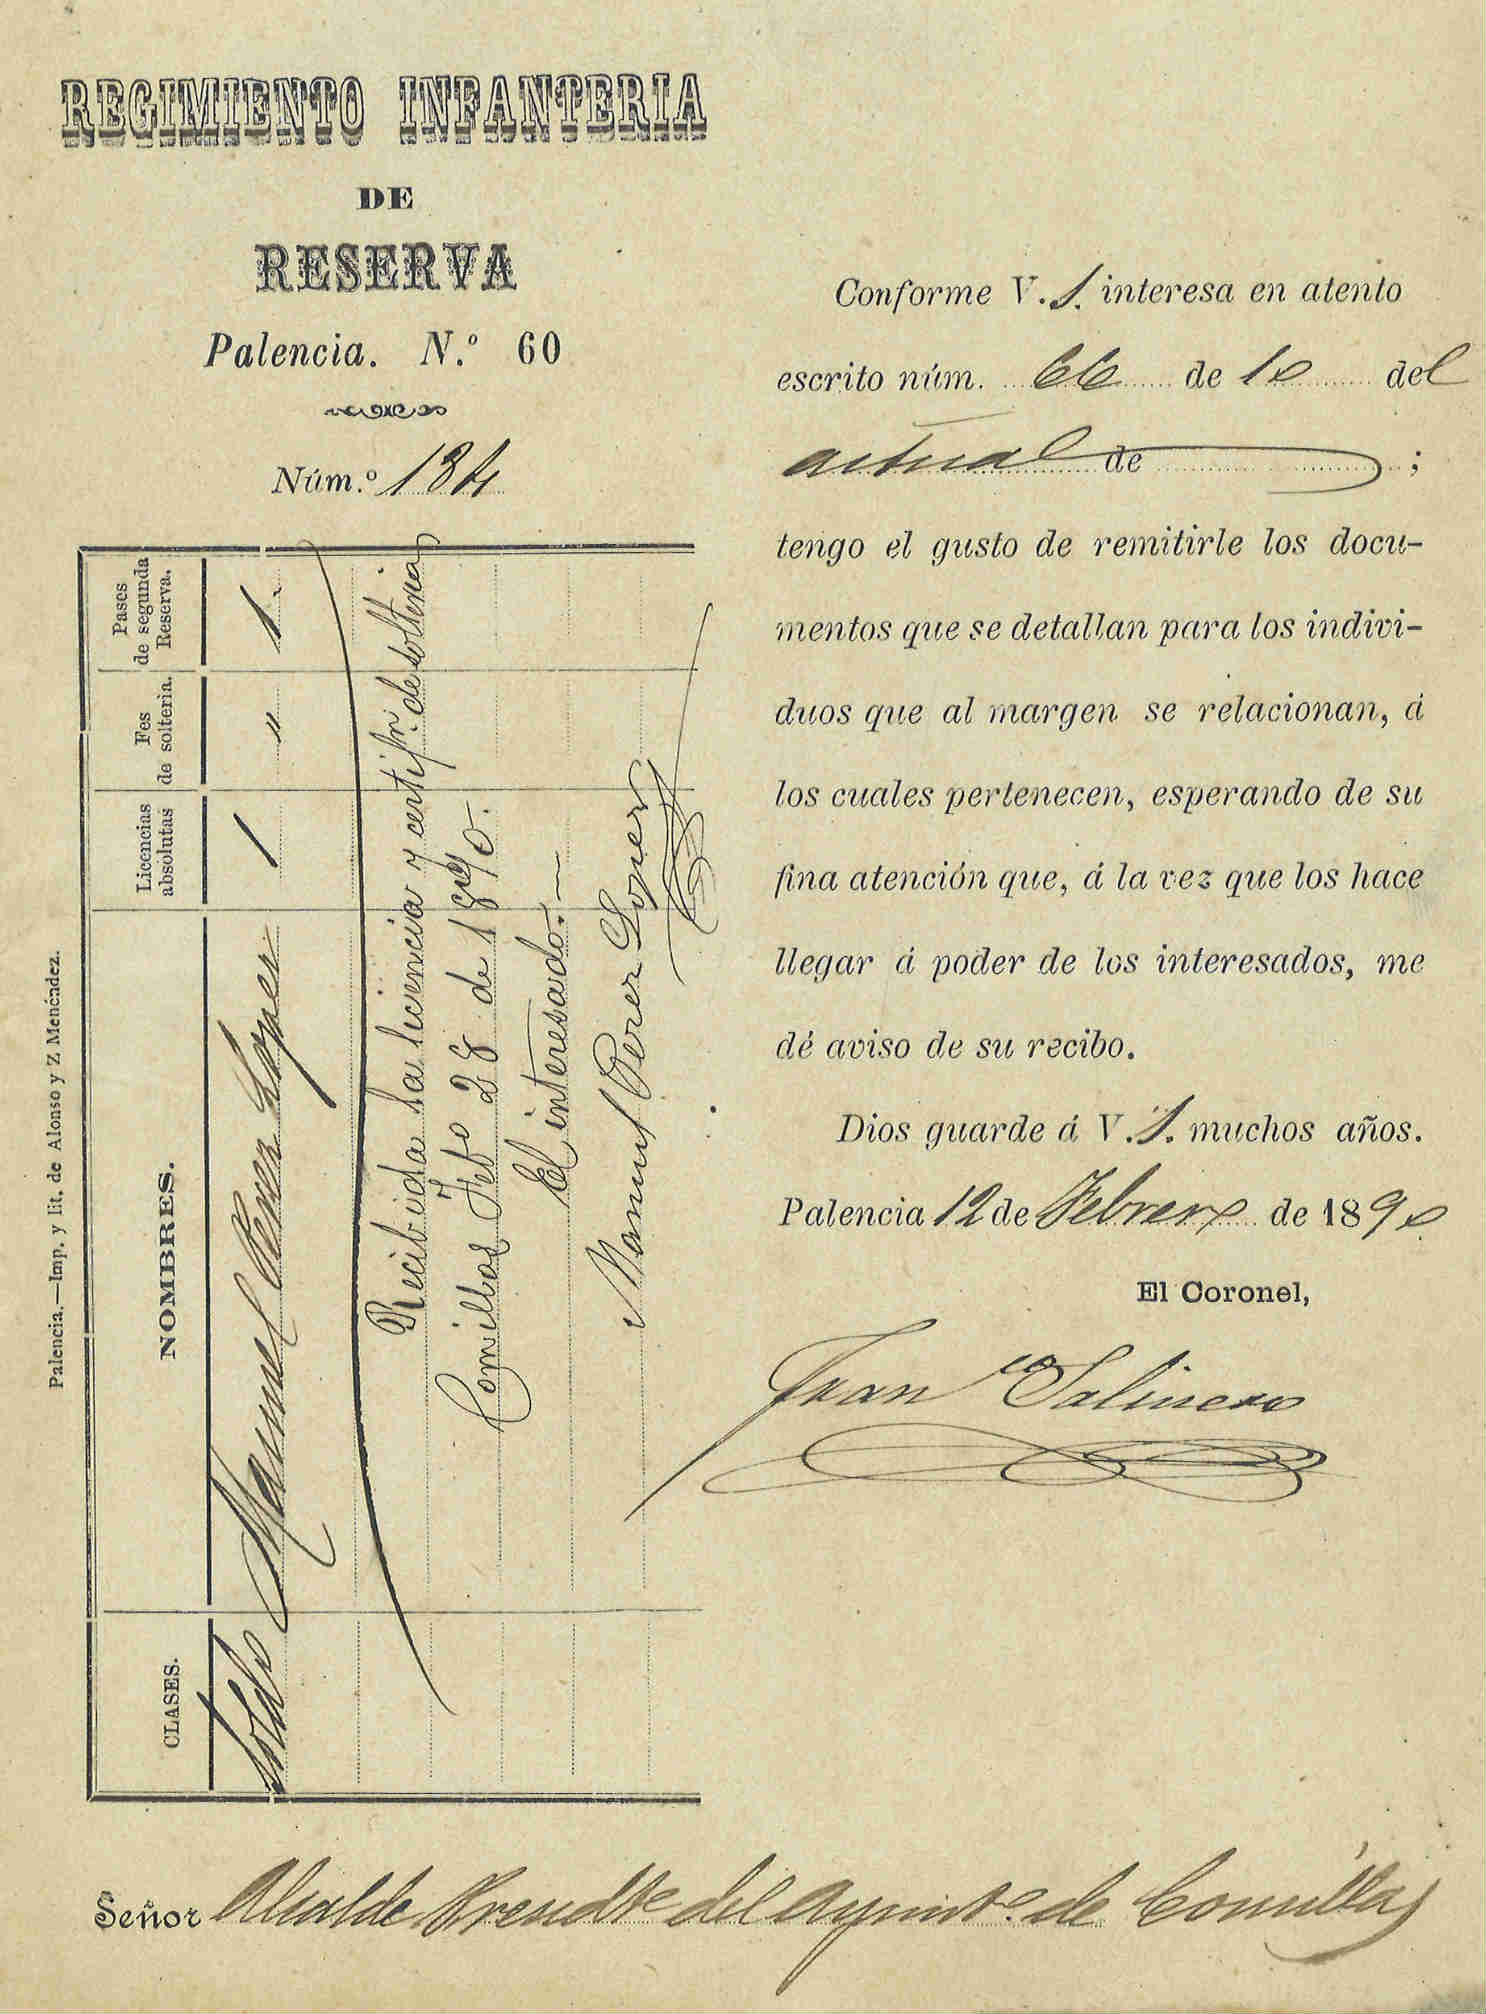 REGIMIENTO INFANTERIA
DE
RESERVA
Palencia. N.º 60
Núm.º 134
Pases de segunda Reserva.
Fes de solteria.
Licencias absolutas
NOMBRES.
CLASES.
1.
"
1
Manuel Perez Lopez
Soldo
Recibida la licencia y certifn. de solteria
Comillas Febo 28 de 1890.
El interesado.—
Manuel Perez Lopez
Palencia.—Imp. y lit. de Alonso y Z Menéndez.
Conforme V. S. interesa en atento
escrito núm. 66 de 10 del
actual de ;
tengo el gusto de remitirle los docu-
mentos que se detallan para los indivi-
duos que al margen se relacionan, á
los cuales pertenecen, esperando de su
fina atención que, á la vez que los hace
llegar á poder de los interesados, me
dé aviso de su recibo.
Dios guarde á V. S. muchos años.
Palencia 12 de Febrero de 1890
El Coronel,
Franco Salinero
Señor Alcalde Presidte del Ayuntº. de Comillas